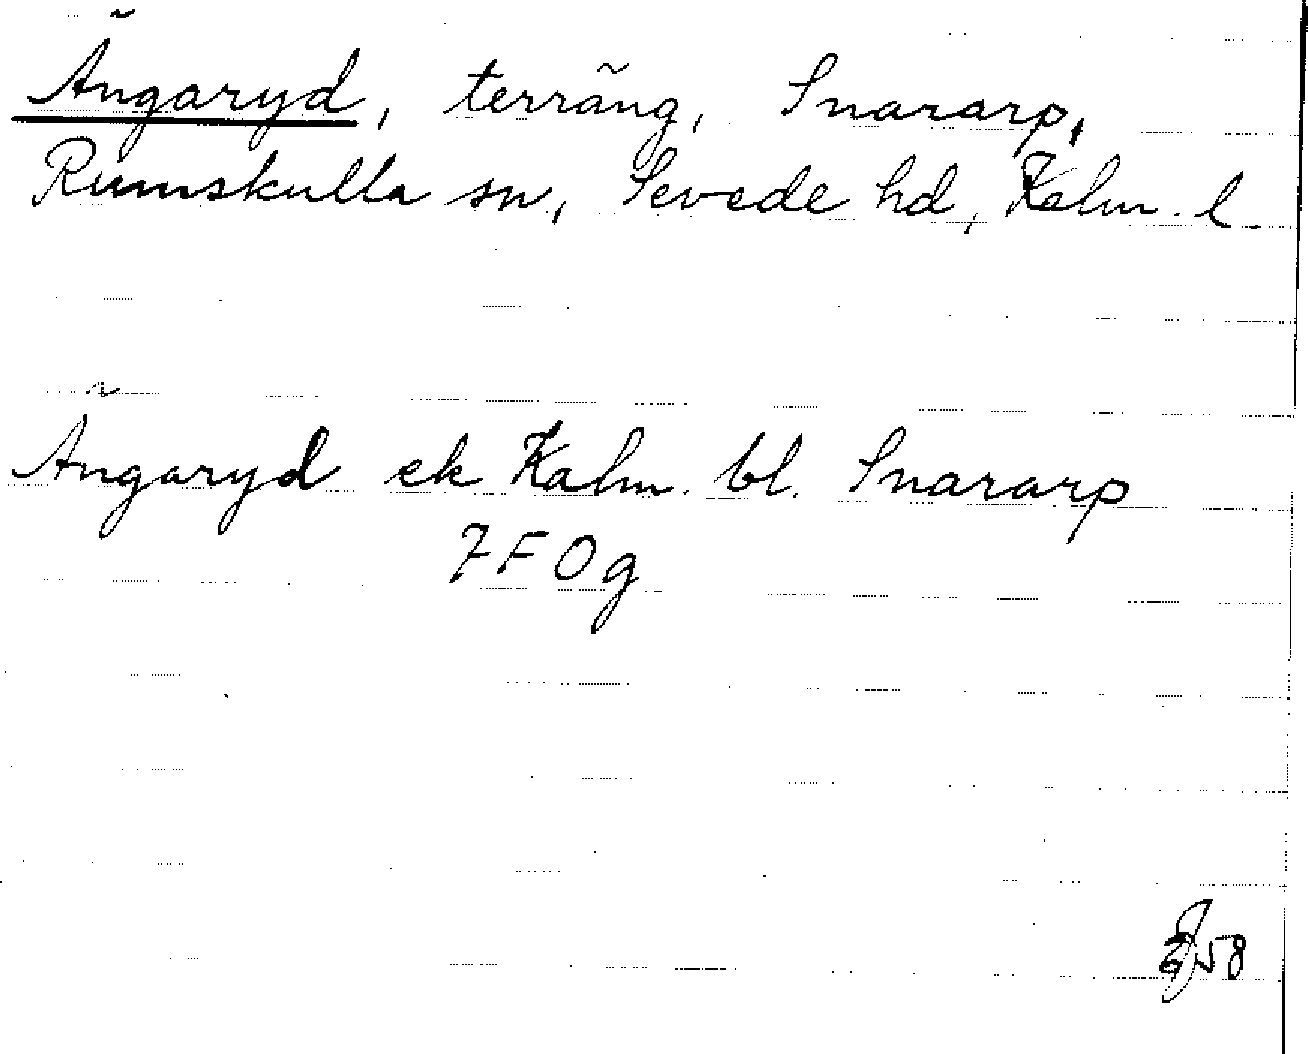 Ängaryd, terräng, Snararp,
Rumskulla sn, Sevede hd, Kalm. l
Ängaryd ek Kalm. bl. Snararp
7F0g
58